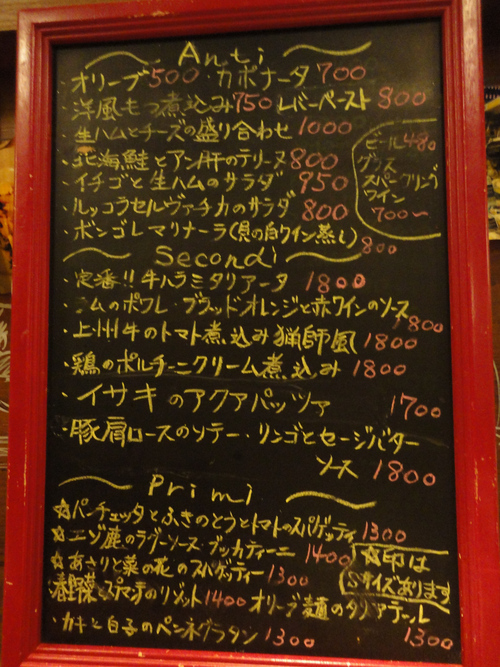 Anti
・オリーブ500・カポナータ700
・洋風もつ煮込み750 レバーペースト800
・生ハムとチーズの盛り合わせ 1000
・北海鮭とアン肝のテリーヌ800
・イチゴと生ハムのサラダ 950
・ルッコラセルヴァチカのサラダ 800
・ボンゴレマリナーラ(貝の白ワイン蒸し) 800
ビール480
グラス
スパークリング
ワイン
700〜
Secondi
・定番!!牛ハラミタリアータ 1800
のポワレ・ブラッドオレンジと赤ワインのソース
1800
・上州牛のトマト煮込み猟師風 1800
・鶏のポルチーニクリーム煮込み 1800
・イサキのアクアパッツァ 1700
・豚肩ロースのソテー・リンゴとセージバター
ソース 1800
Primi
☆パンチェッタとふきのとうとトマトのスパゲッティ1300
☆エゾ鹿のラグーソースブッカティーニ 1400
☆あさりと菜の花のスパゲッティー1300
☆印は
Sサイズあります
のリゾット1400 オリーブ麺の
1300
・カキと白子のペンネグラタン1300